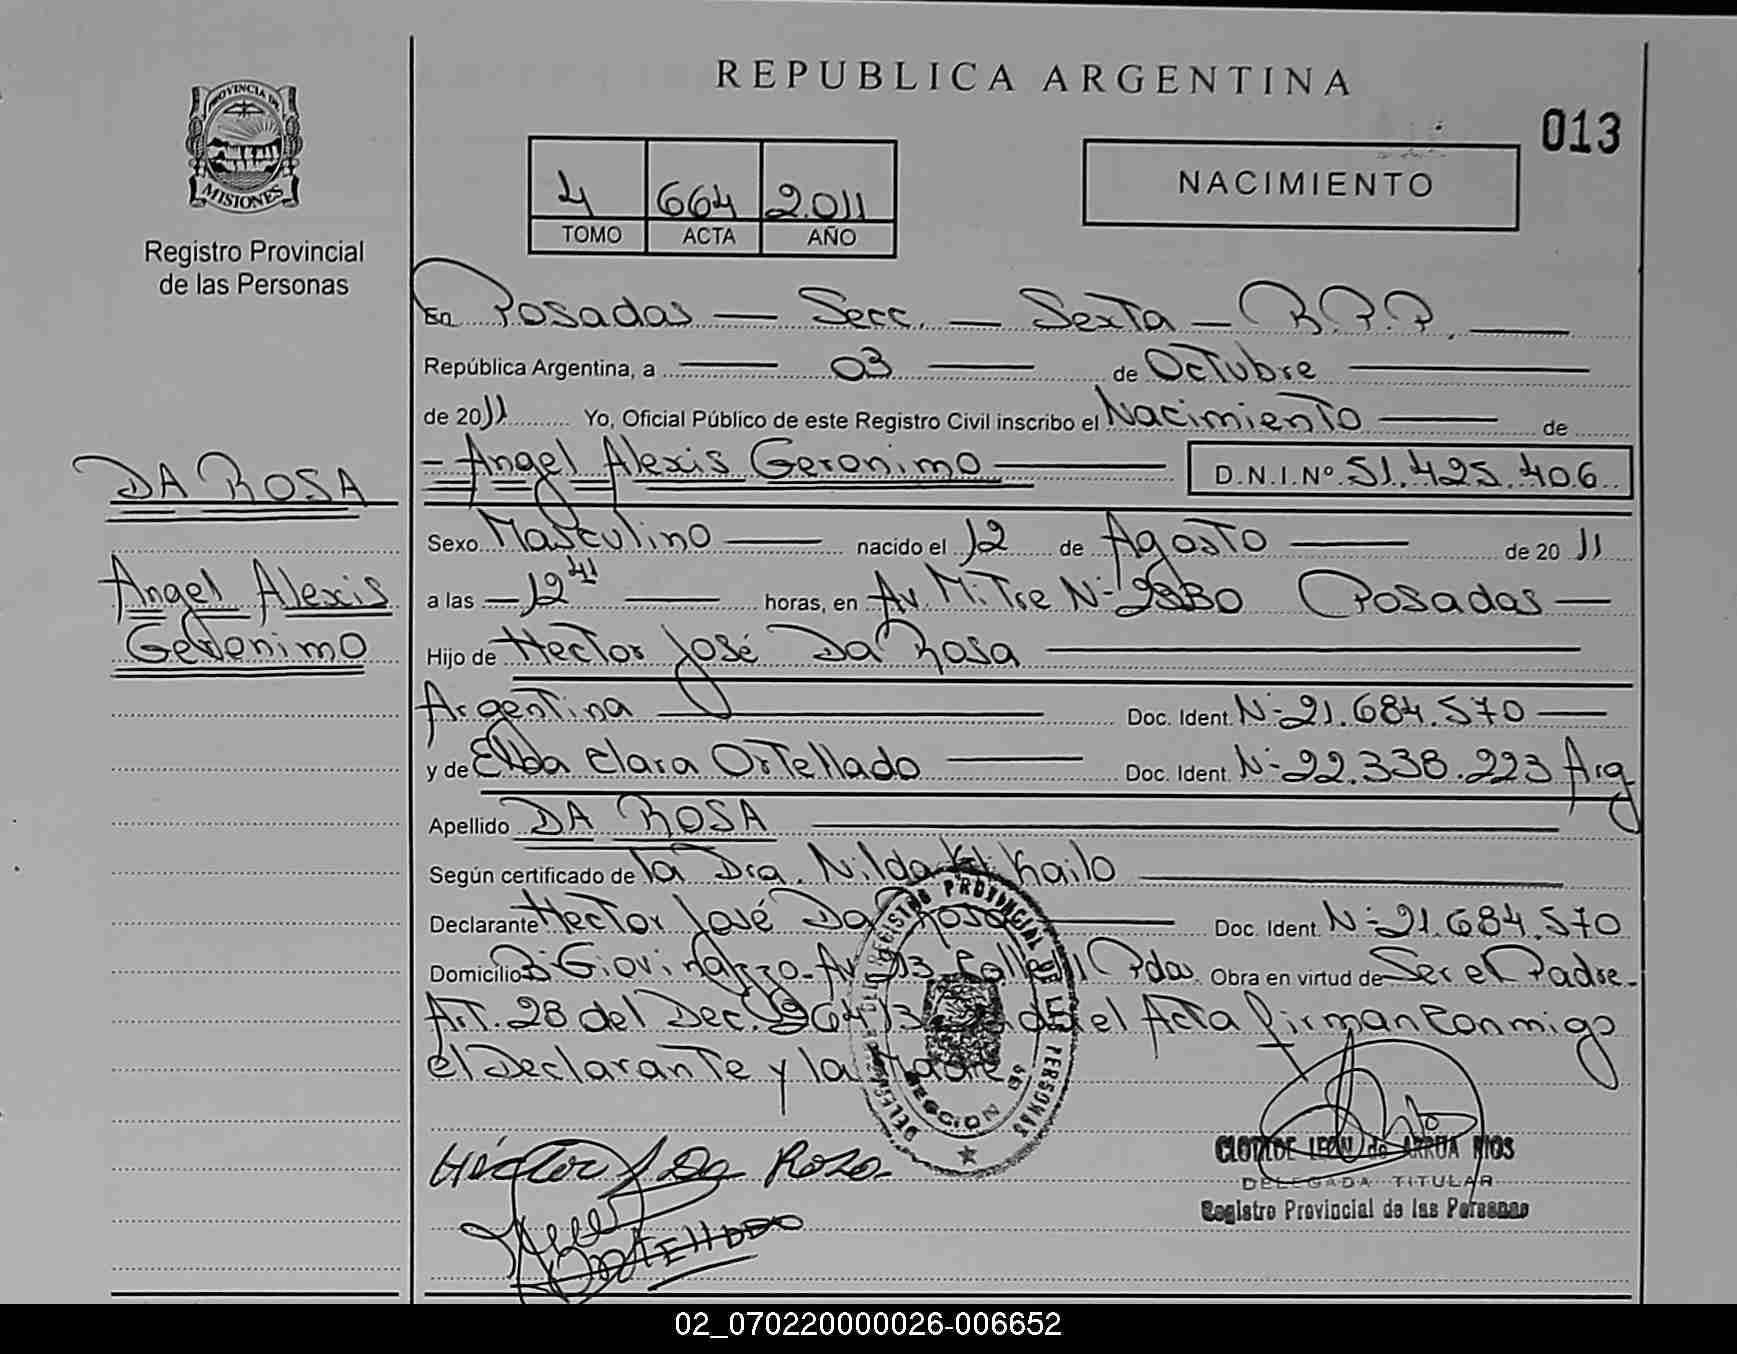 REPUBLICA ARGENTINA
013
PROVINCIA DE
MISIONES
Registro Provincial
de las Personas
4 664 2.011
TOMO ACTA AÑO
NACIMIENTO
En Posadas — Secc. — Sexta — R.P.P. —
República Argentina, a — 03 — de Octubre —
de 2011 Yo, Oficial Público de este Registro Civil inscribo el Nacimiento — de
— Angel Alexis Geronimo — D.N.I.Nº 51.425.406
DA ROSA
Angel Alexis
Geronimo
Sexo Masculino — nacido el 12 de Agosto — de 2011
a las — 12 41 — horas, en Av. Mitre Nº Posadas —
Hijo de Hector José Da Rosa —
Argentina — Doc. Ident. Nº 21.684.570 —
y de Elda Clara Ortellado — Doc. Ident. Nº 22.338.223 Arg
Apellido DA ROSA —
Según certificado de la Dra. Nilda Kailo —
Declarante Hector José Da Rosa — Doc. Ident. Nº 21.684.570
Domicilio Bº Giovinazzo - Av. Pdas. Obra en virtud de Ser el Padre.-
Art. 28 del Dec. el Acta firman conmigo
el Declarante y la Madre
REGISTRO PROVINCIAL DE LAS PERSONAS
SECCION
Héctor J Da Rosa
CLOTILDE LEON de ARRUA RIOS
DELEGADA TITULAR
Registro Provincial de las Personas
02_070220000026-006652